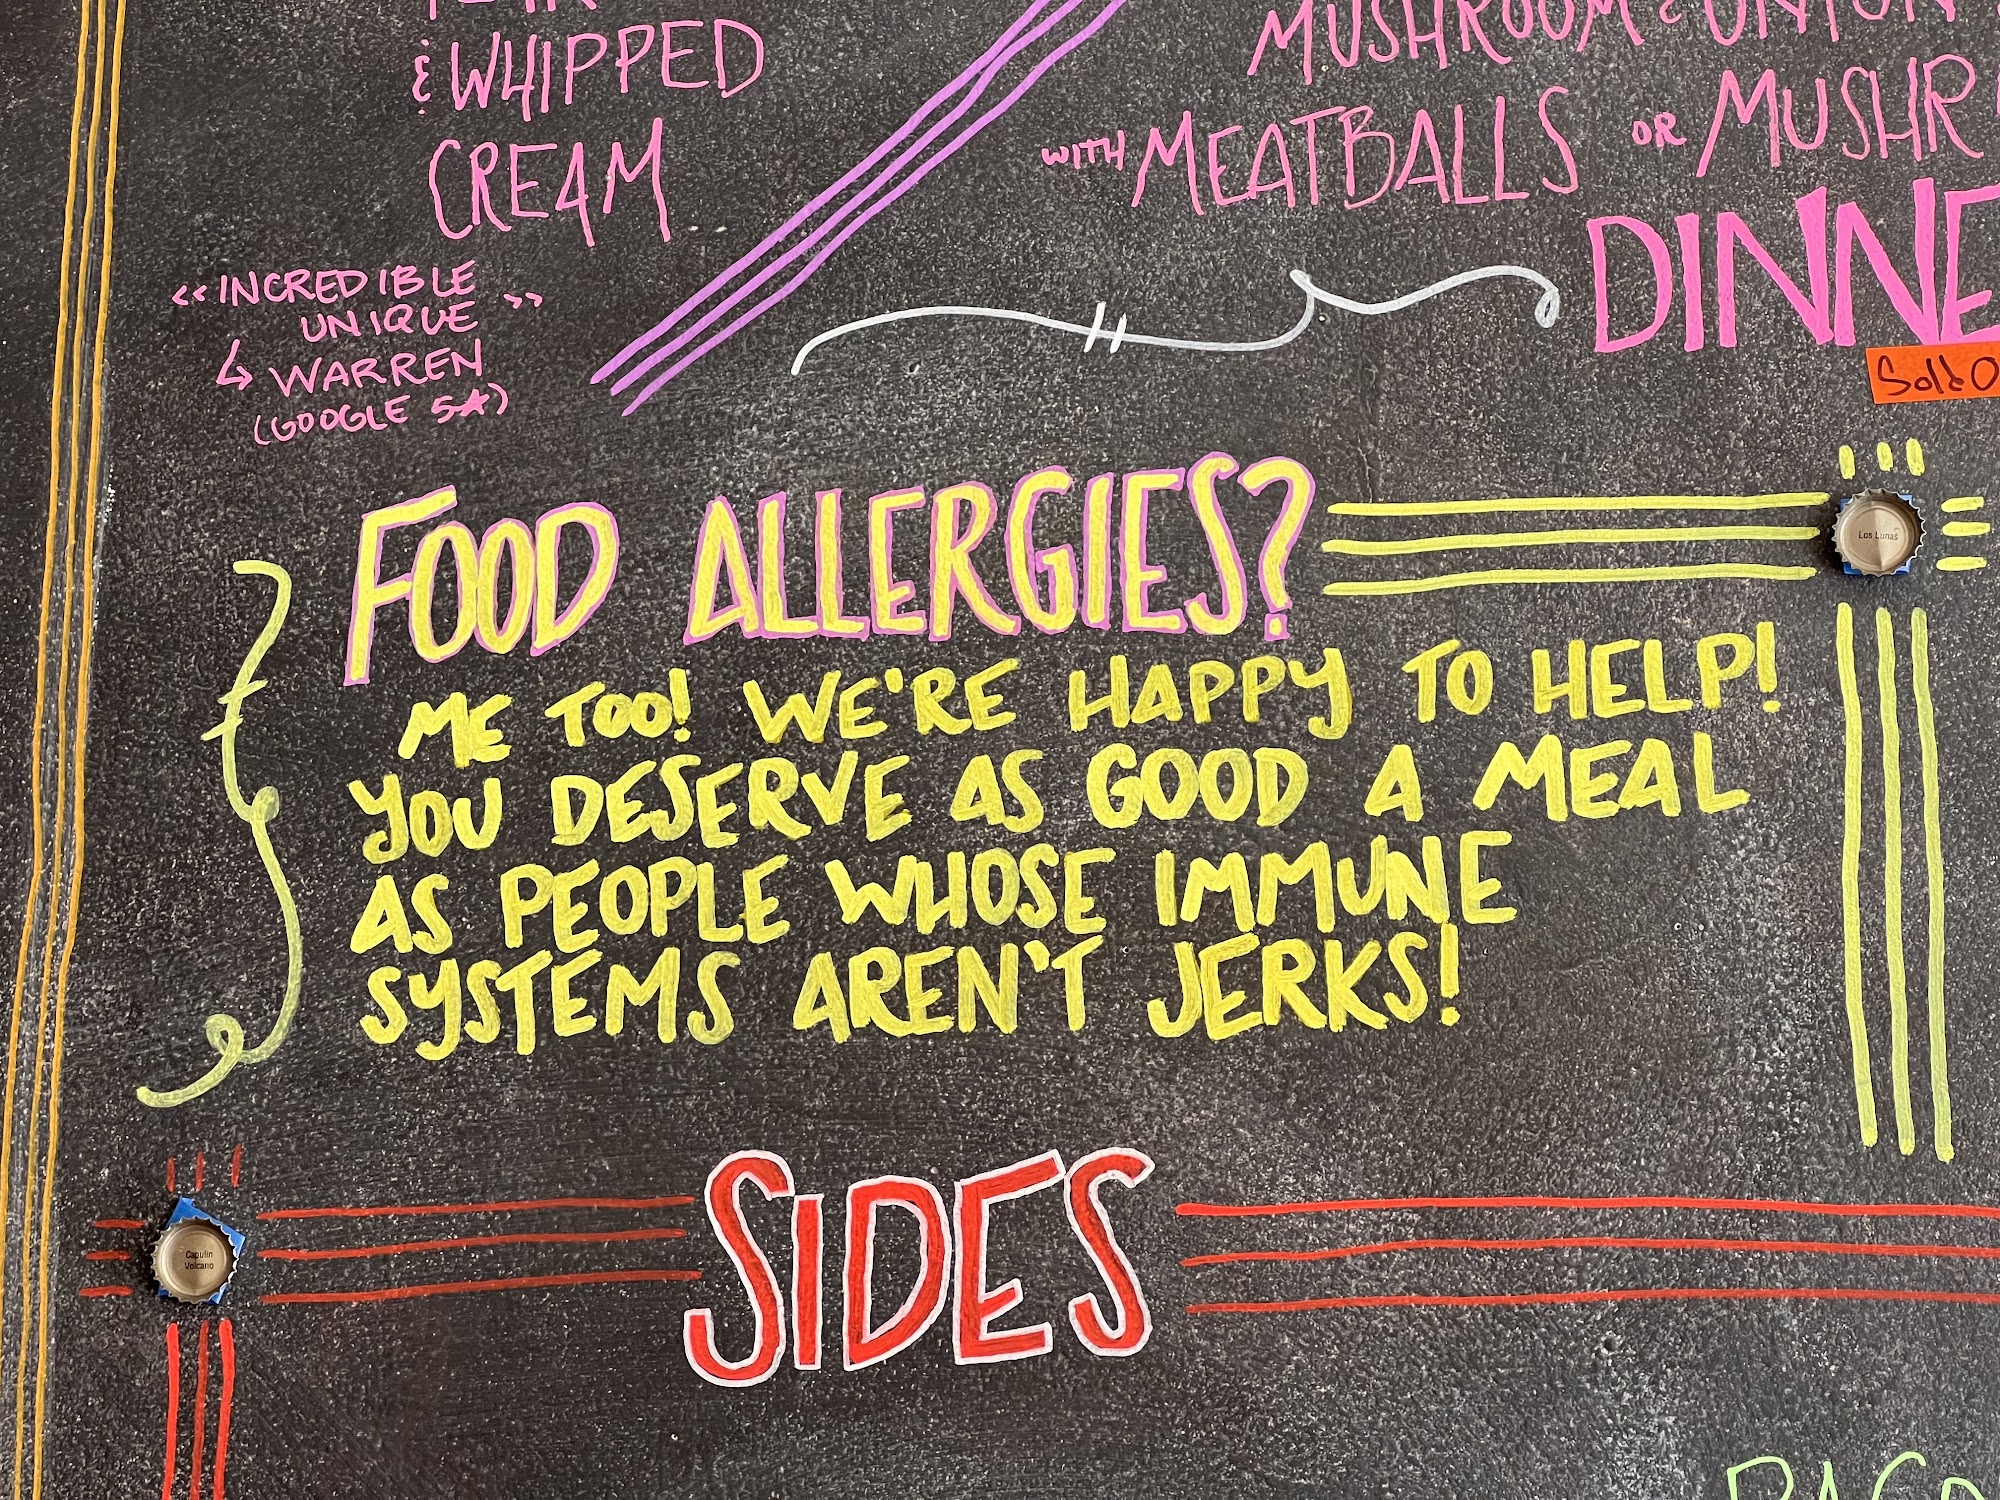 & WHIPPED
CREAM
MUSHROOM & ONION
WITH MEATBALLS OR
« INCREDIBLE
UNIQUE »
↳ WARREN
(GOOGLE 5★)
FOOD ALLERGIES?
ME TOO! WE'RE HAPPY TO HELP!
YOU DESERVE AS GOOD A MEAL
AS PEOPLE WHOSE IMMUNE
SYSTEMS AREN'T JERKS!
Los Lunas
SIDES
Capulin
Volcano